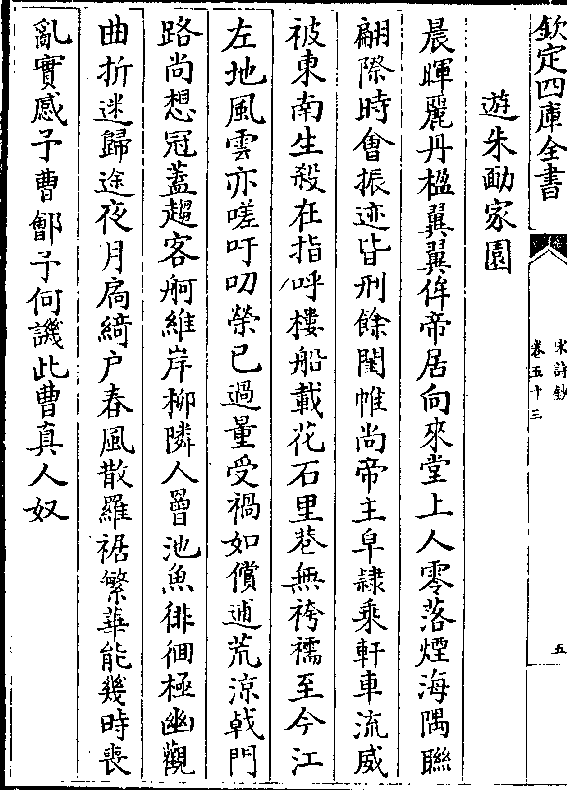 欽定四庫全書
宋詩鈔
卷五十三
五
遊朱勔家園
晨暉麗丹楹翼翼侔帝居向來堂上人零落煙海隅聯
翩際時會振迹皆刑餘閨帷尚帝主皁隷乘軒車流威
被東南生殺在指呼樓船載花石里巷無袴襦至今江
左地風雲亦嗟吁叨榮已過量受禍如償逋荒涼㦸門
路尚想冠蓋趨客舸維岸柳隣人罾池魚徘徊極幽觀
曲折迷歸途夜月扄綺户春風散羅裾繁華能幾時喪
亂實感予曹鄶予何譏此曹真人奴